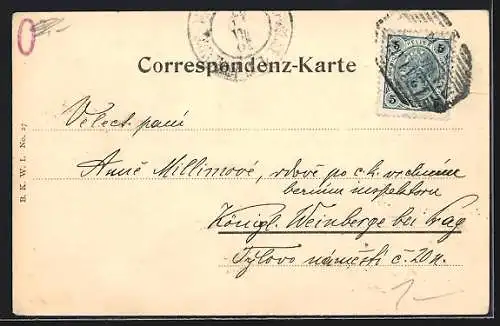 Correspondenz-Karte
5 5
5
B. K. W. I. No. 27
Velect. paní
Anně Millimové, vdově po c. k. vrchním
berním inspektoru
Königl. Weinberge bei Prag
Tylovo náměstí č. 20 n.